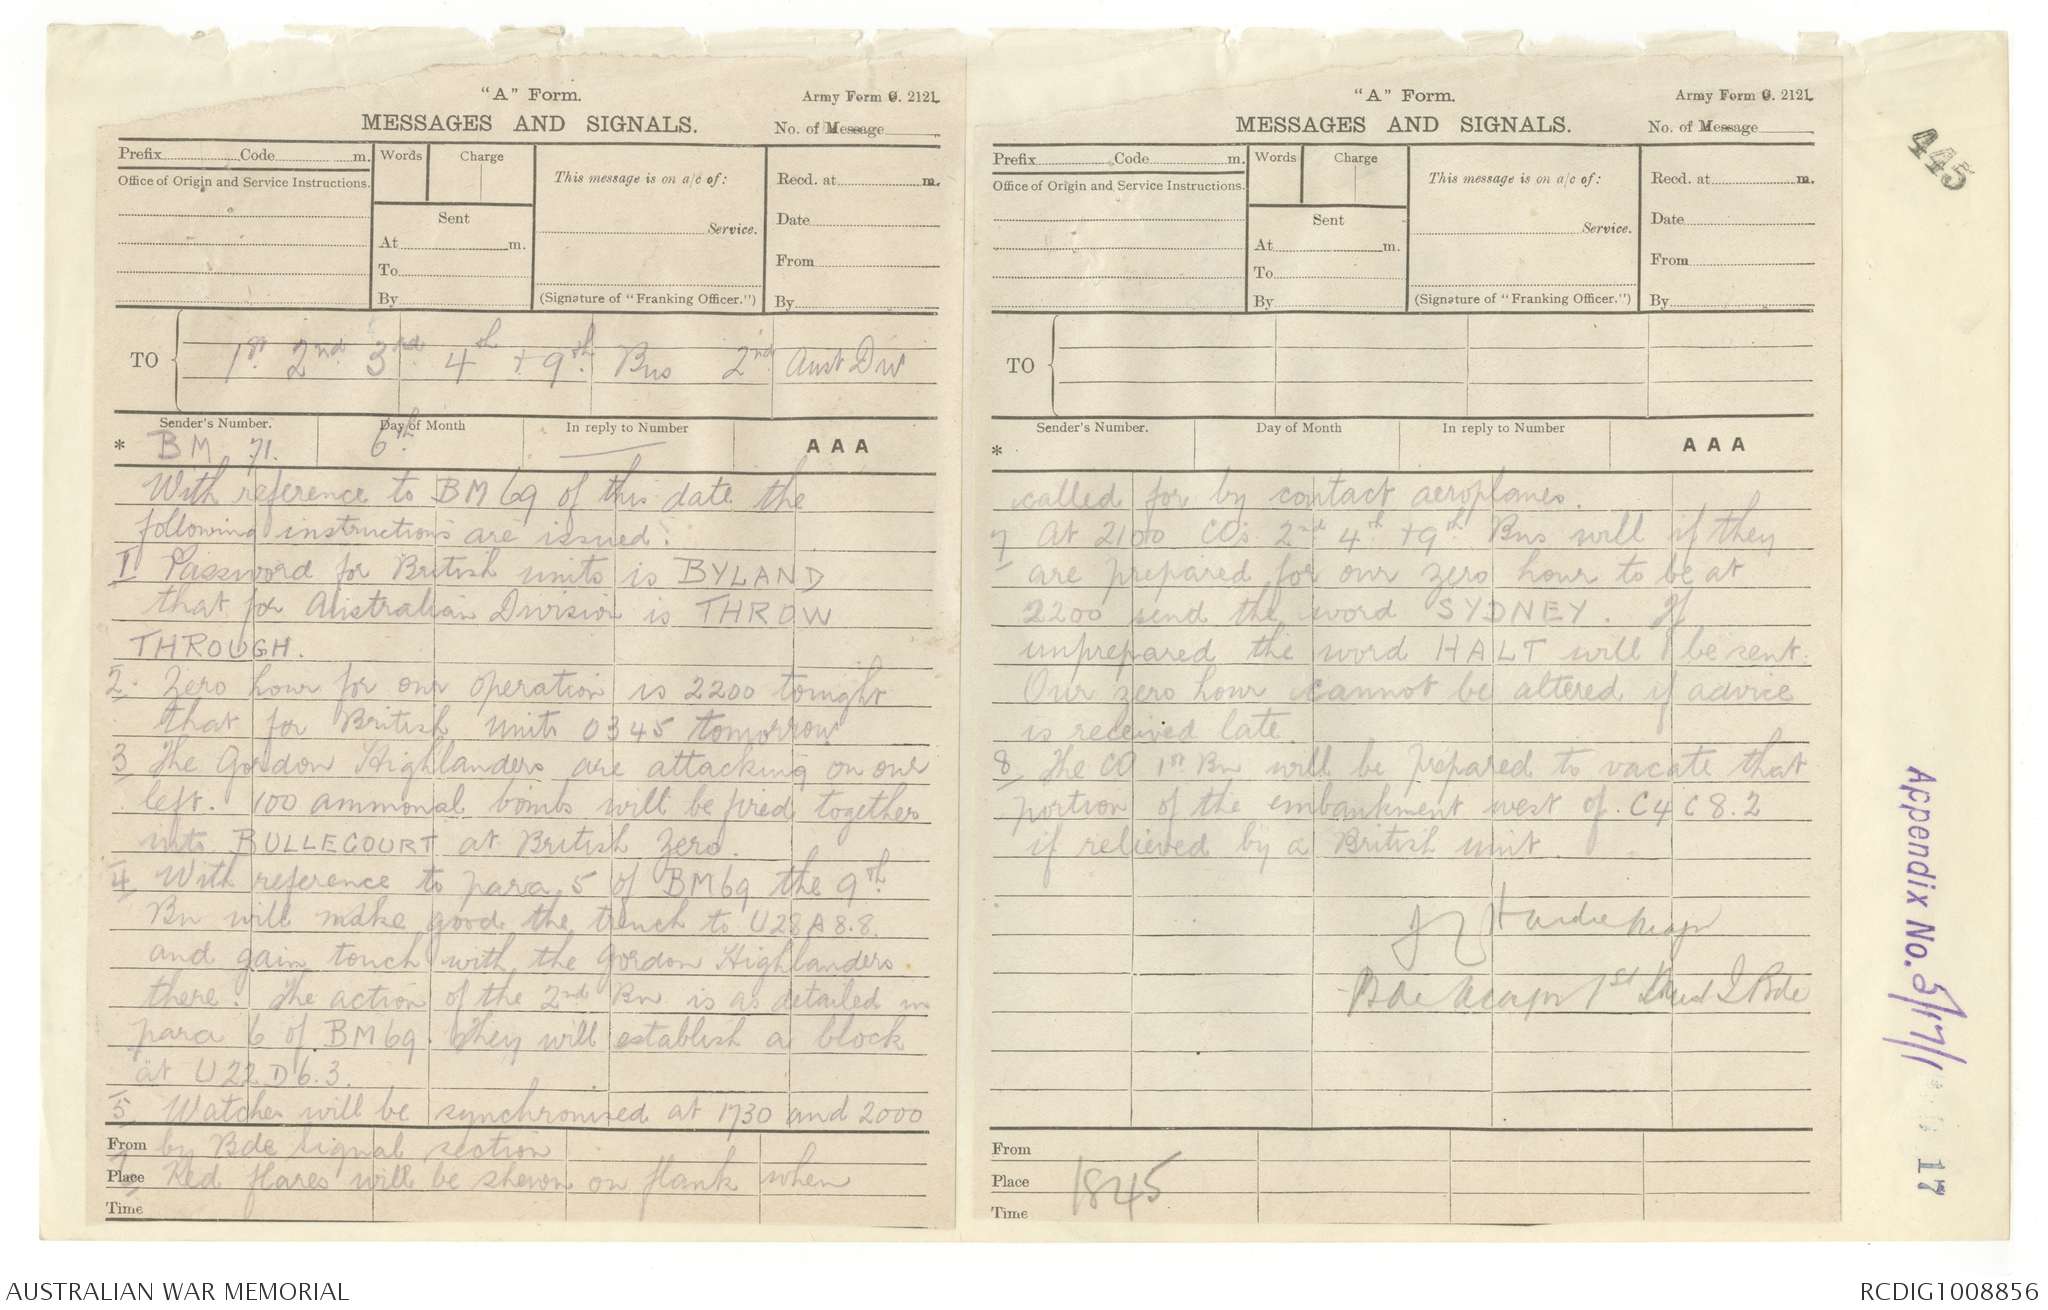 "A" Form.
Army Form C. 2121.
MESSAGES AND SIGNALS.
No. of Message
Prefix Code m.
Words Charge
This message is on a/c of:
Recd. at m.
Office of Origin and Service Instructions.
Sent
Date
Service.
At m.
From
To
By
(Signature of "Franking Officer.")
By
TO
1st 2nd 3rd 4th + 9th Bns 2nd Aust Div
Sender's Number. Day of Month In reply to Number
* BM 71. 6th. AAA
With reference to BM 69 of this date the
following instructions are issued.
1 Password for British units is BYLAND
that for Australian Division is THROW
THROUGH.
2. Zero hour for our operation is 2200 tonight
that for British units 0345 tomorrow
3 The Gordon Highlanders are attacking on our
left. 100 ammonal bombs will be fired together
into BULLECOURT at British Zero.
4 With reference to para 5 of BM69 the 9th
Bn will make good the trench to U28A8.8.
and gain touch with the Gordon Highlanders
there. The action of the 2nd Bn is as detailed in
para 6 of BM69. They will establish a block
at U22D6.3.
5 Watches will be synchronised at 1730 and 2000
From by Bde signal section
Place Red flares will be shewn on flank when
Time
"A" Form.
Army Form C. 2121.
MESSAGES AND SIGNALS.
No. of Message
Prefix Code m.
Words Charge
This message is on a/c of:
Recd. at m.
Office of Origin and Service Instructions.
Sent
Date
Service.
At m.
From
To
By
(Signature of "Franking Officer.")
By
TO
Sender's Number. Day of Month In reply to Number
* AAA
called for by contact aeroplanes.
7 At 2100 COs 2nd 4th + 9th Bns will if they
are prepared for our zero hour to be at
2200 send the word SYDNEY. If
unprepared the word HALT will be sent.
Our zero hour cannot be altered if advice
is received late.
8 The CO 1st Bn will be prepared to vacate that
portion of the embankment west of C4C8.2
if relieved by a British unit.
Hardie Major
Bde Major 1st Aust I Bde
From
Place
1845
Time
445
Appendix No. 5/17/1
17
AUSTRALIAN WAR MEMORIAL
RCDIG1008856